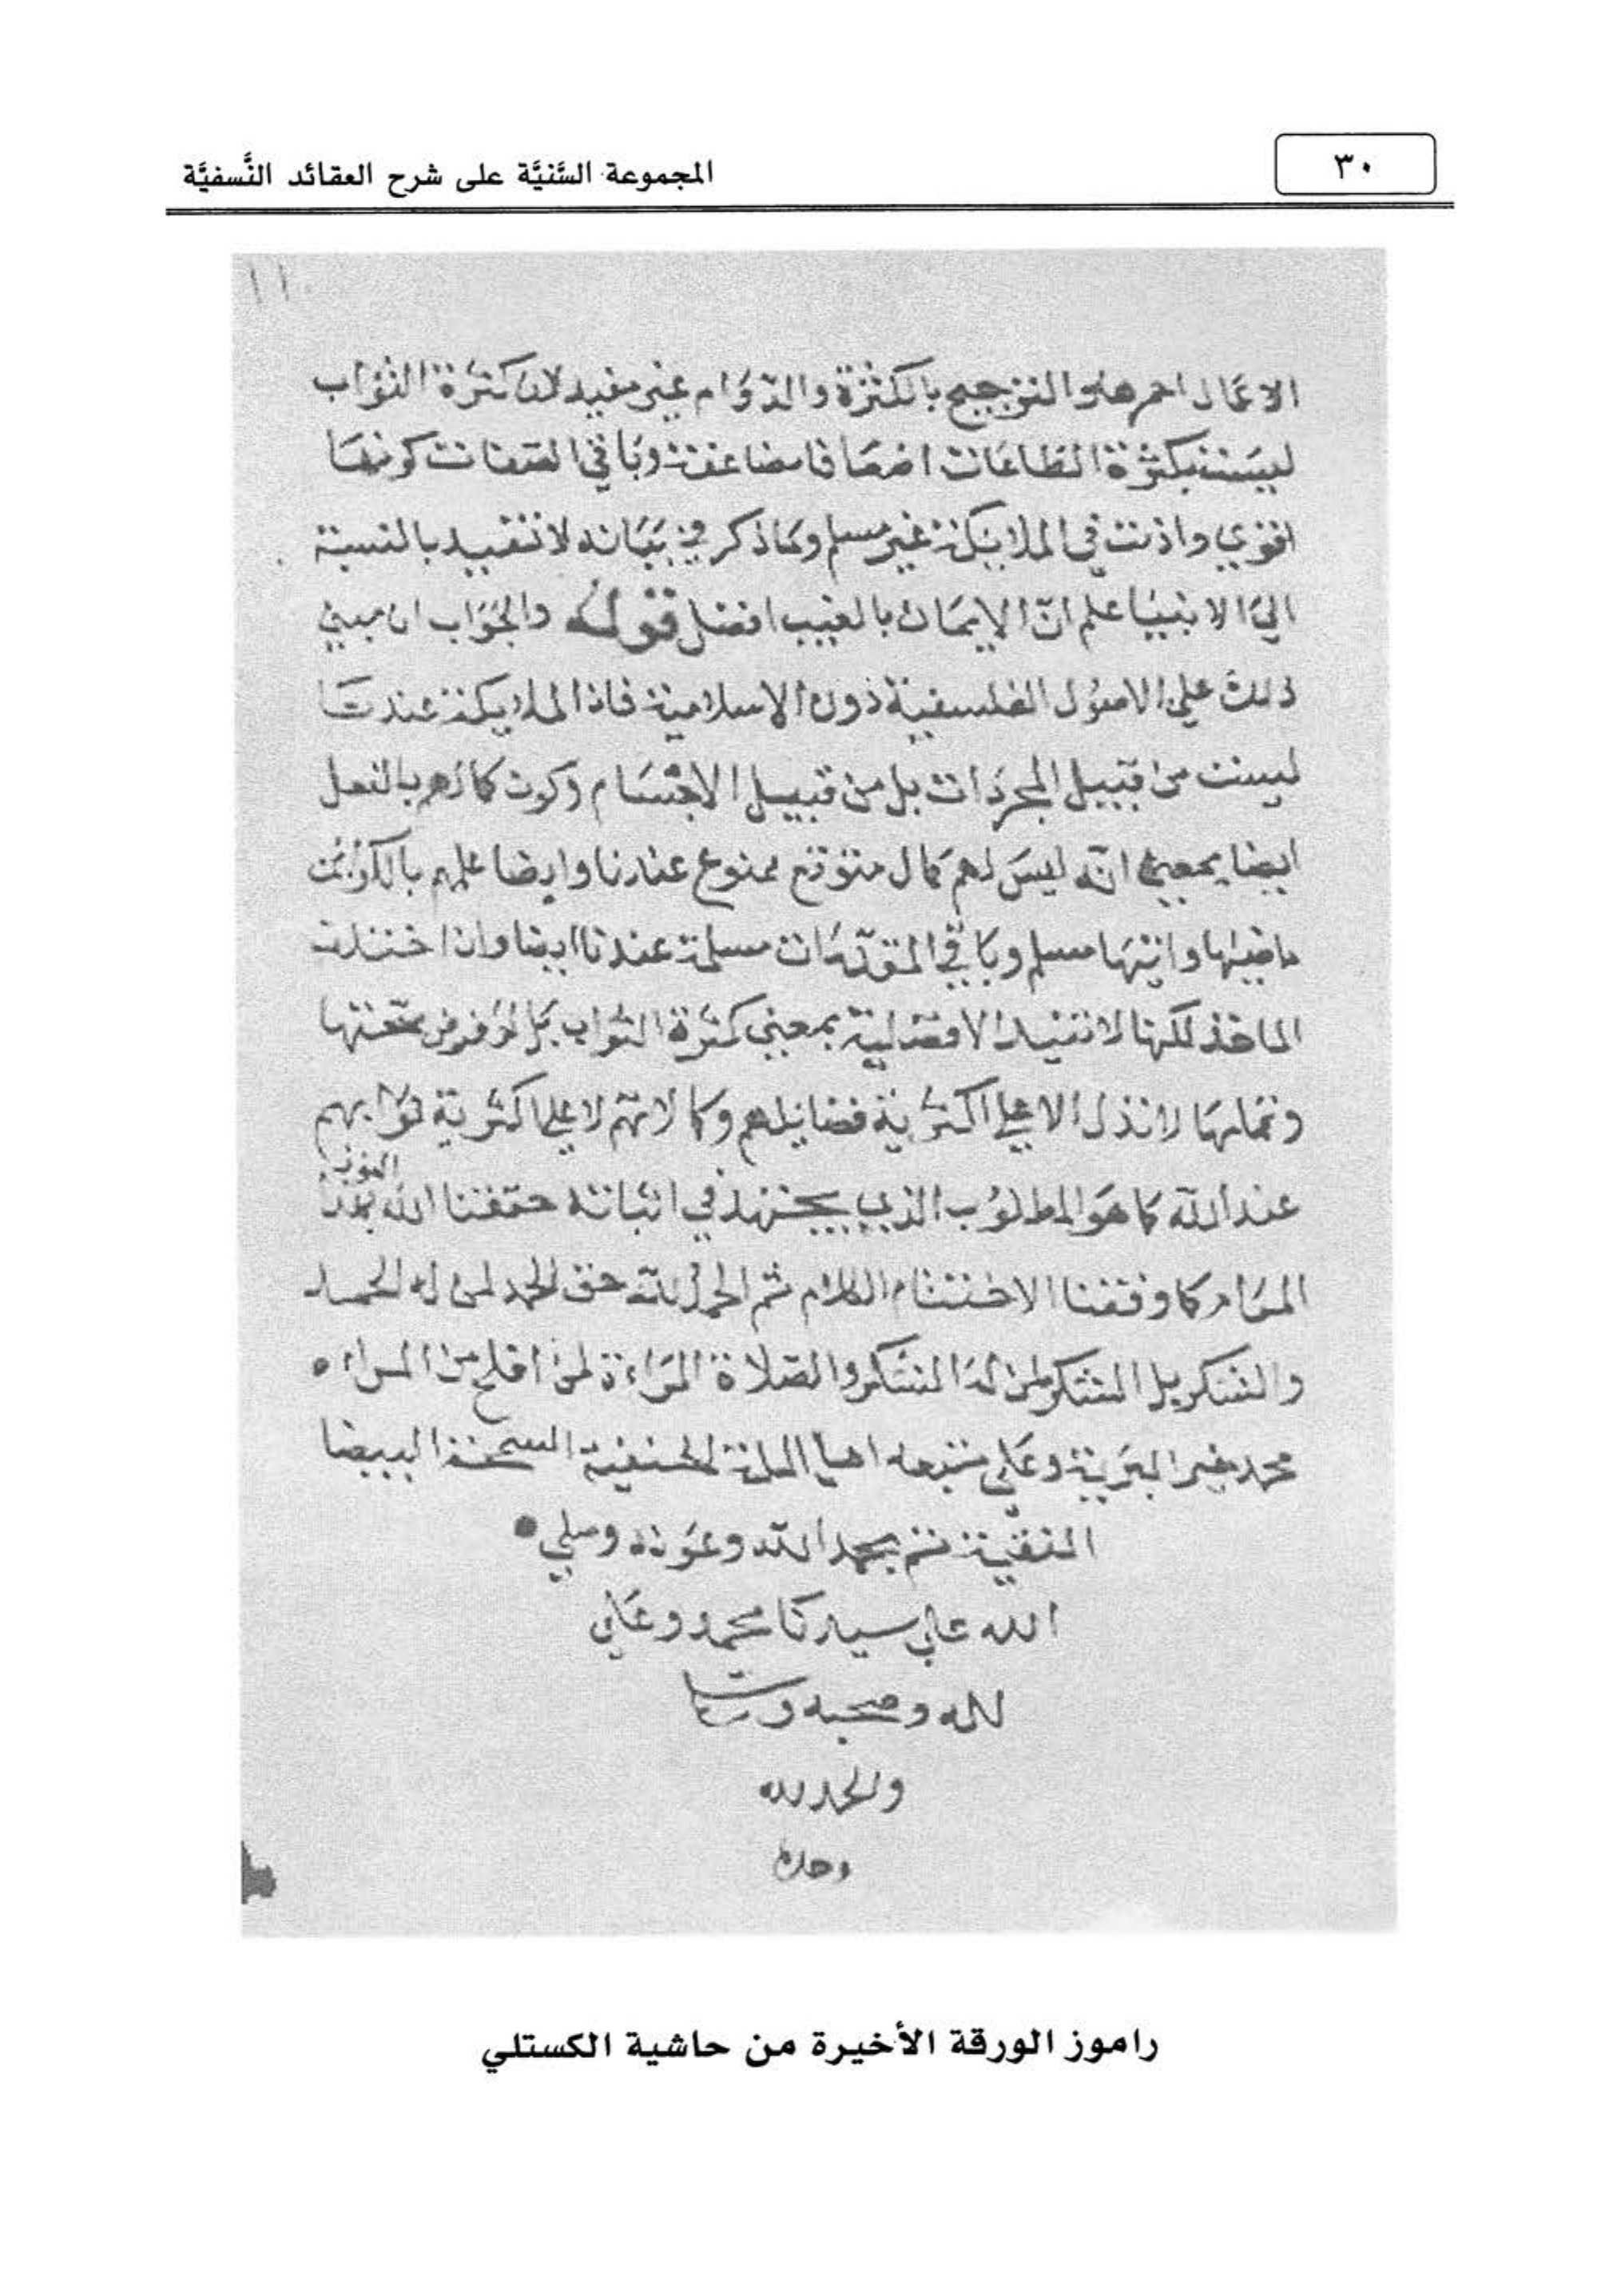 ٣٠
المجموعة السَّنيَّة على شرح العقائد النَّسفيَّة
الاعمال احمزها والترجيح بالكثرة والدوام غير مفيد لان كثرة الثواب
ليست بكثرة الطاعات اضعافا مضاعفة وباقي الصفات كونها
اقوي وادوم في الملايكة غير مسلم وما ذكر في بيانه لا تفيد بالنسبة
الي الانبيا علم انّ الايمان بالغيب افضل قوله والجواب ان مبني
ذلك علي الاصول الفلسفية دون الاسلامية فان الملايكة عندنا
ليست من قبيل المجردات بل من قبيل الاجسام وكون كمالهم بالفعل
ايضا بمعني انّه ليس لهم كمال متوقع ممنوع عندنا وايضا علمهم بالكواين
ماضيها واتيها مسلم وباقي المقدّمات مسلمة عندنا ايضا وان اختلفت
الماخذ لكنها لا تفيد الافضلية بمعني كثرة الثواب بل لو فرض صحتها
وتمامها لا تدل الا علي اكثرية فضايلهم وكمالاتهم لا علي اكثرية ثوابهم
عند الله كما هو المطلوب الذي يجتهد في اثباته حققنا الله بهذا
المرام كما وفقنا لاختتام الكلام ثم الحمد لله حق الحمد لمن له الحمد
والشكر بل الشكر لمن له الشكر والصلاة لمن افلح من
محمد خير البرية وعلي متبعه احيا الملة الحنيفية السمحة البيضا
النقية تم بحمد الله وعونه وصلي
الله علي سيدنا محمد وعلي
اله وصحبه وسلم
والحمد لله
وحده
راموز الورقة الأخيرة من حاشية الكستلي